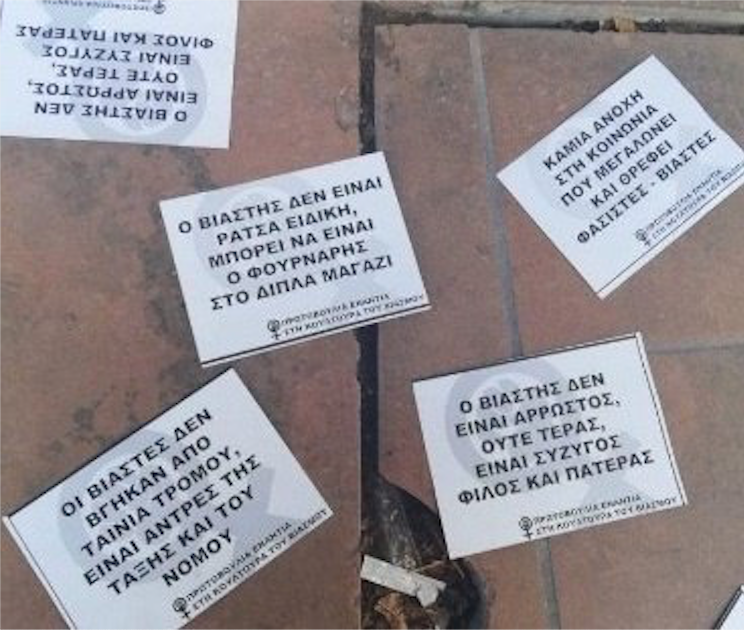 Ο ΒΙΑΣΤΗΣ ΔΕΝ
ΕΙΝΑΙ ΑΡΡΩΣΤΟΣ,
ΟΥΤΕ ΤΕΡΑΣ,
ΕΙΝΑΙ ΣΥΖΥΓΟΣ
ΦΙΛΟΣ ΚΑΙ ΠΑΤΕΡΑΣ
ΠΡΩΤΟΒΟΥΛΙΑ ΕΝΑΝΤΙΑ
ΚΑΜΙΑ ΑΝΟΧΗ
ΣΤΗ ΚΟΙΝΩΝΙΑ
ΠΟΥ ΜΕΓΑΛΩΝΕΙ
ΚΑΙ ΘΡΕΦΕΙ
ΦΑΣΙΣΤΕΣ - ΒΙΑΣΤΕΣ
ΠΡΩΤΟΒΟΥΛΙΑ ΕΝΑΝΤΙΑ
ΣΤΗ ΚΟΥΛΤΟΥΡΑ ΤΟΥ ΒΙΑΣΜΟΥ
Ο ΒΙΑΣΤΗΣ ΔΕΝ ΕΙΝΑΙ
ΡΑΤΣΑ ΕΙΔΙΚΗ,
ΜΠΟΡΕΙ ΝΑ ΕΙΝΑΙ
Ο ΦΟΥΡΝΑΡΗΣ
ΣΤΟ ΔΙΠΛΑ ΜΑΓΑΖΙ
ΠΡΩΤΟΒΟΥΛΙΑ ΕΝΑΝΤΙΑ
ΣΤΗ ΚΟΥΛΤΟΥΡΑ ΤΟΥ ΒΙΑΣΜΟΥ
Ο ΒΙΑΣΤΗΣ ΔΕΝ
ΕΙΝΑΙ ΑΡΡΩΣΤΟΣ,
ΟΥΤΕ ΤΕΡΑΣ,
ΕΙΝΑΙ ΣΥΖΥΓΟΣ
ΦΙΛΟΣ ΚΑΙ ΠΑΤΕΡΑΣ
ΠΡΩΤΟΒΟΥΛΙΑ ΕΝΑΝΤΙΑ
ΣΤΗ ΚΟΥΛΤΟΥΡΑ ΤΟΥ ΒΙΑΣΜΟΥ
ΟΙ ΒΙΑΣΤΕΣ ΔΕΝ
ΒΓΗΚΑΝ ΑΠΟ
ΤΑΙΝΙΑ ΤΡΟΜΟΥ,
ΕΙΝΑΙ ΑΝΤΡΕΣ ΤΗΣ
ΤΑΞΗΣ ΚΑΙ ΤΟΥ
ΝΟΜΟΥ
ΠΡΩΤΟΒΟΥΛΙΑ ΕΝΑΝΤΙΑ
ΣΤΗ ΚΟΥΛΤΟΥΡΑ ΤΟΥ ΒΙΑΣΜΟΥ